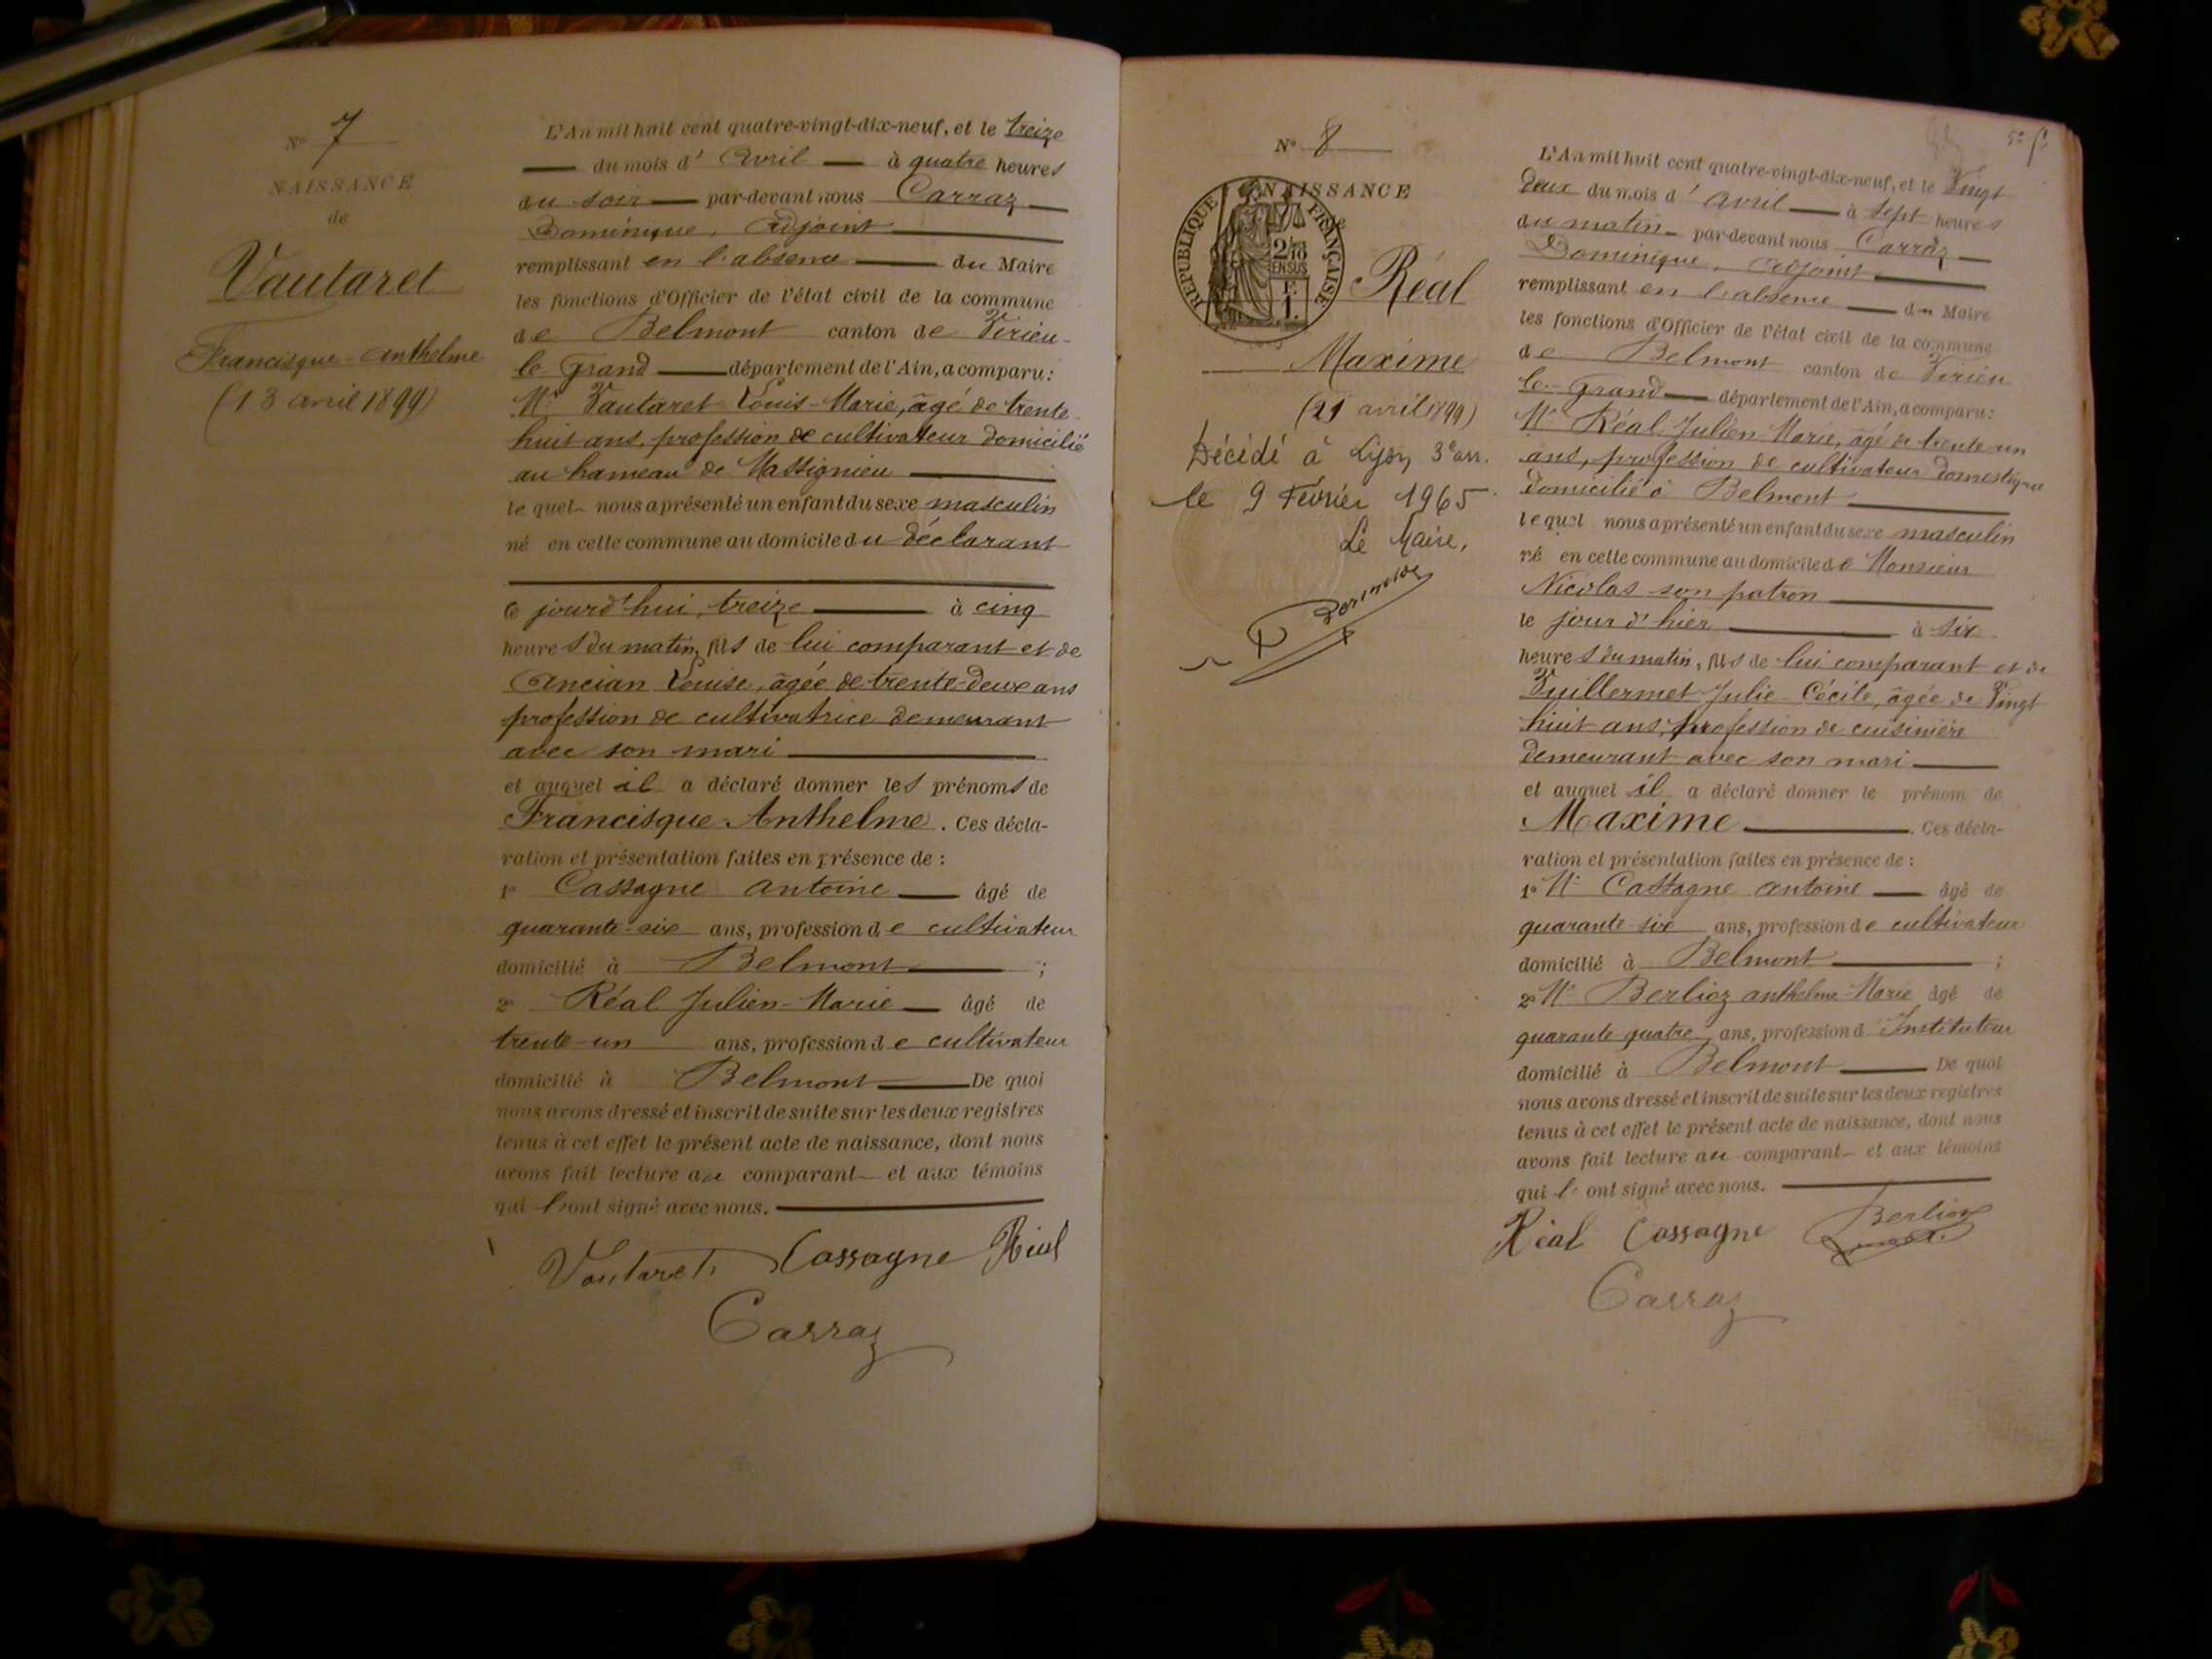 N° 7
NAISSANCE
de
Vautaret
Francisque-Anthelme
(13 avril 1899)
L'An mil huit cent quatre-vingt-dix-neuf, et le treize
du mois d'avril à quatre heures
du soir par-devant nous Carraz
Dominique, adjoint
remplissant en l'absence du Maire
les fonctions d'Officier de l'état civil de la commune
de Belmont canton de Virieu-
le Grand département de l'Ain, a comparu:
Mr Vautaret Louis-Marie, âgé de trente
huit ans, profession de cultivateur domicilié
au hameau de Massignieu
lequel nous a présenté un enfant du sexe masculin
né en cette commune au domicile du déclarant
ce jourd'hui, treize à cinq
heures du matin, fils de lui comparant et de
Ancian Louise, âgée de trente-deux ans
profession de cultivatrice demeurant
avec son mari
et auquel il a déclaré donner les prénoms de
Francisque-Anthelme. Ces décla-
ration et présentation faites en présence de :
1° Cassagne Antoine âgé de
quarante-six ans, profession de cultivateur
domicilié à Belmont ;
2° Réal Julien-Marie âgé de
trente-un ans, profession de cultivateur
domicilié à Belmont De quoi
nous avons dressé et inscrit de suite sur les deux registres
tenus à cet effet le présent acte de naissance, dont nous
avons fait lecture au comparant et aux témoins
qui l'ont signé avec nous.
Vautaret Cassagne Réal
Carraz
N° 8
NAISSANCE
REPUBLIQUE FRANÇAISE
2/10
EN SUS
F.
1.
Réal
Maxime
(21 avril 1899)
Décédé à Lyon 3e arr.
le 9 Février 1965
Le Maire,
5e f.
L'An mil huit cent quatre-vingt-dix-neuf, et le Vingt
deux du mois d'avril à sept heures
du matin par-devant nous Carraz
Dominique, adjoint
remplissant en l'absence du Maire
les fonctions d'Officier de l'état civil de la commune
de Belmont canton de Virieu
le-Grand département de l'Ain, a comparu:
Mr Réal Julien-Marie, âgé de trente-un
ans, profession de cultivateur domestique
domicilié à Belmont
lequel nous a présenté un enfant du sexe masculin
né en cette commune au domicile de Monsieur
Nicolas son patron
le jour d'hier à six
heures du matin, fils de lui comparant et de
Vuillermet Julie-Cécile, âgée de Vingt
huit ans, profession de cuisinière
demeurant avec son mari
et auquel il a déclaré donner le prénom de
Maxime. Ces décla-
ration et présentation faites en présence de :
1° Mr Cassagne Antoine âgé de
quarante-six ans, profession de cultivateur
domicilié à Belmont ;
2° Mr Berlioz Anthelme-Marie âgé de
quarante-quatre ans, profession d'Instituteur
domicilié à Belmont De quoi
nous avons dressé et inscrit de suite sur les deux registres
tenus à cet effet le présent acte de naissance, dont nous
avons fait lecture au comparant et aux témoins
qui l'ont signé avec nous.
Réal Cassagne Berlioz
Carraz